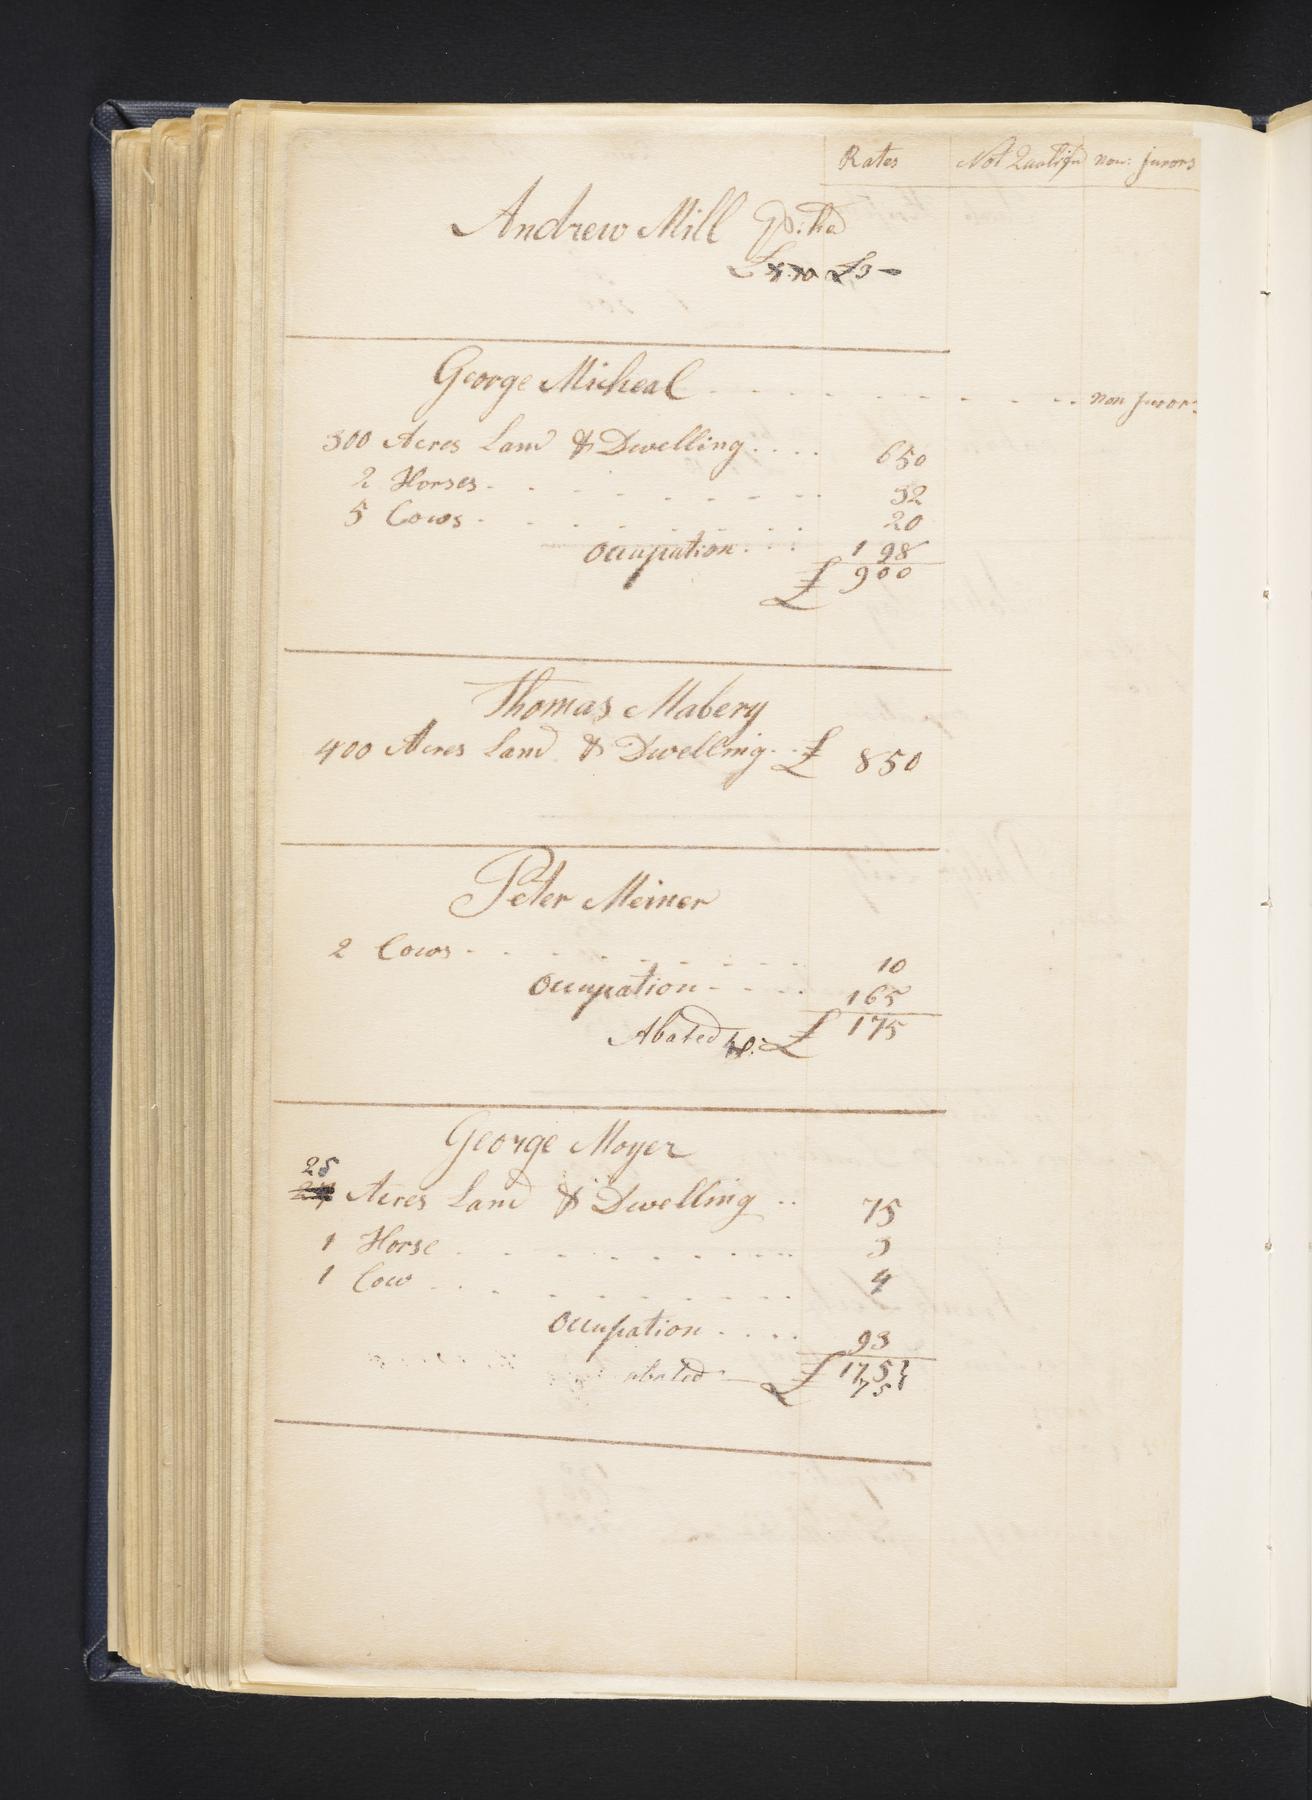 Rates Not Qualifd non: jurors
Andrew Mill P: hd
£3 –
George Micheal . . . . . . . . . . . non juror:
300 Acres Land & Dwelling . . . . 650
2 Horses - - - - - - - - - 32
5 Cows - - - - - - - - - 20
Occupation . . . 198
£ 900
Thomas Mabery
400 Acres Land & Dwelling . . £ 850
Peter Meiner
2 Cows - - - - - - - - - 10
Occupation - - - - 165
Abated £ 175
George Moyer
25
24 Acres Land & Dwelling . . 75
1 Horse . . . . . . . . . 3
1 Cow . . . . . . . . . 4
Occupation . . . . 93
abated — £ 175
75